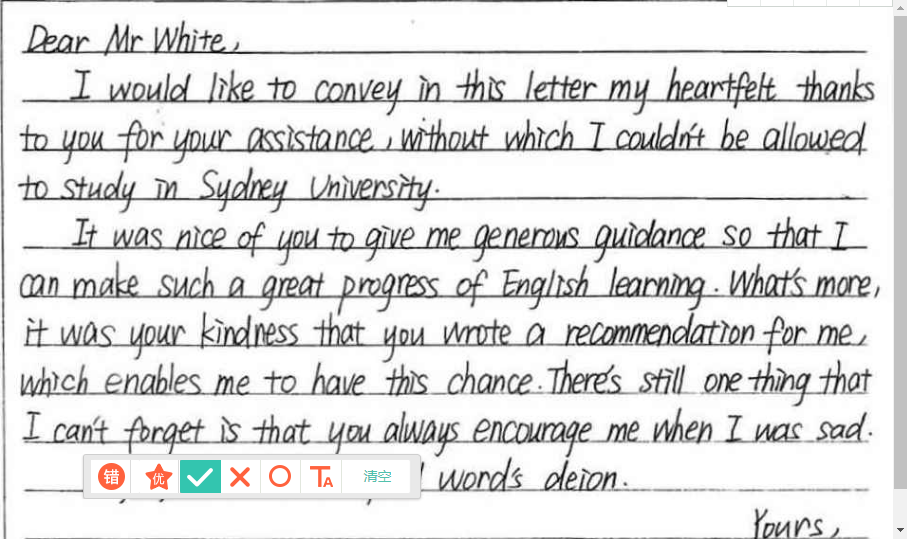 Dear Mr White,
I would like to convey in this letter my heartfelt thanks
to you for your assistance, without which I couldn't be allowed
to study in Sydney University.
It was nice of you to give me generous guidance so that I
can make such a great progress of English learning. What's more,
it was your kindness that you wrote a recommendation for me,
which enables me to have this chance. There's still one thing that
I can't forget is that you always encourage me when I was sad.
错 优 TA 清空
word's deion.
Yours,